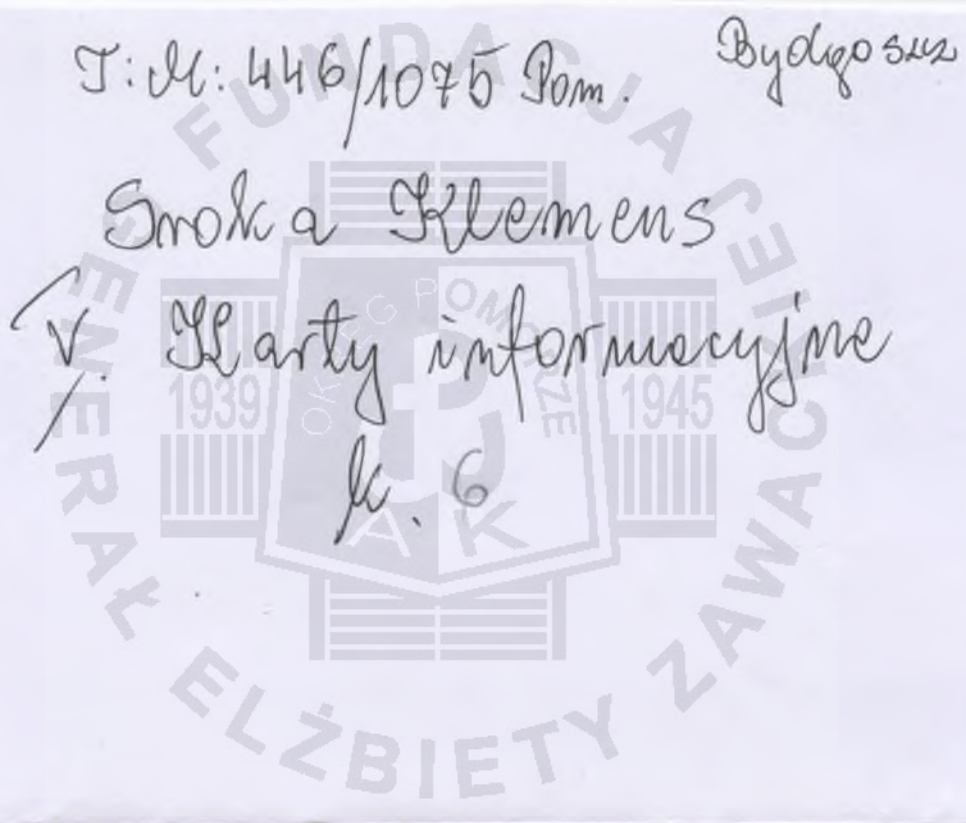 T:M: 446/1075 Pom.
Bydgoszcz
Sroka Klemens
V. Karty informacyjne
k. 6
FUNDACJA GENERAŁ ELŻBIETY ZAWACKIEJ
OKRĘG POMORZE
1939
1945
AK